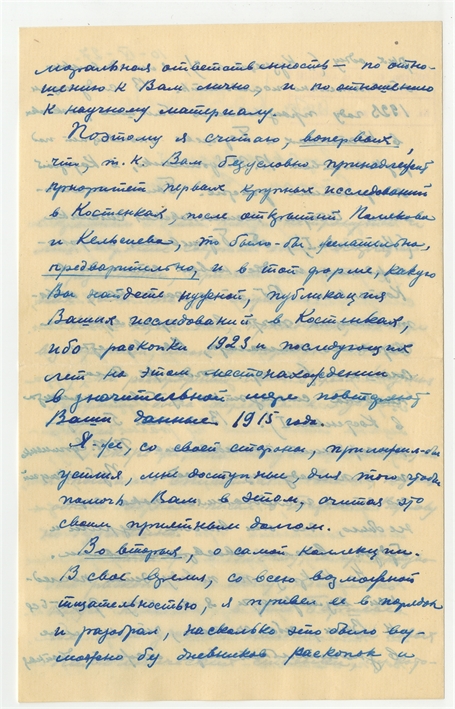 моральная ответственность — по отно-
шению к Вам лично и по отношению
к научному материалу.
Поэтому я считаю, вопервых,
что, т.к. Вам безусловно принадлежит
приоритет первых крупных исследований
в Костенках, после открытий Полякова
и Кельсиева, то было-бы желательно,
предварительно, и в той форме, какую
Вы найдете нужной, публикация
Ваших исследований в Костенках,
ибо раскопки 1923 и последующих
лет на этом местонахождении
в значительной мере повторяют
Ваши данные 1915 года.
Я-же, со своей стороны, приложил-бы
усилия, мне доступные, для того, чтобы
помочь Вам в этом, считая это
своим приятным долгом.
Во вторых, о самой коллекции.
В свое время, со всею возможной
тщательностью, я привел ее в порядок
и разобрал, насколько это было воз-
можно без дневников раскопок и